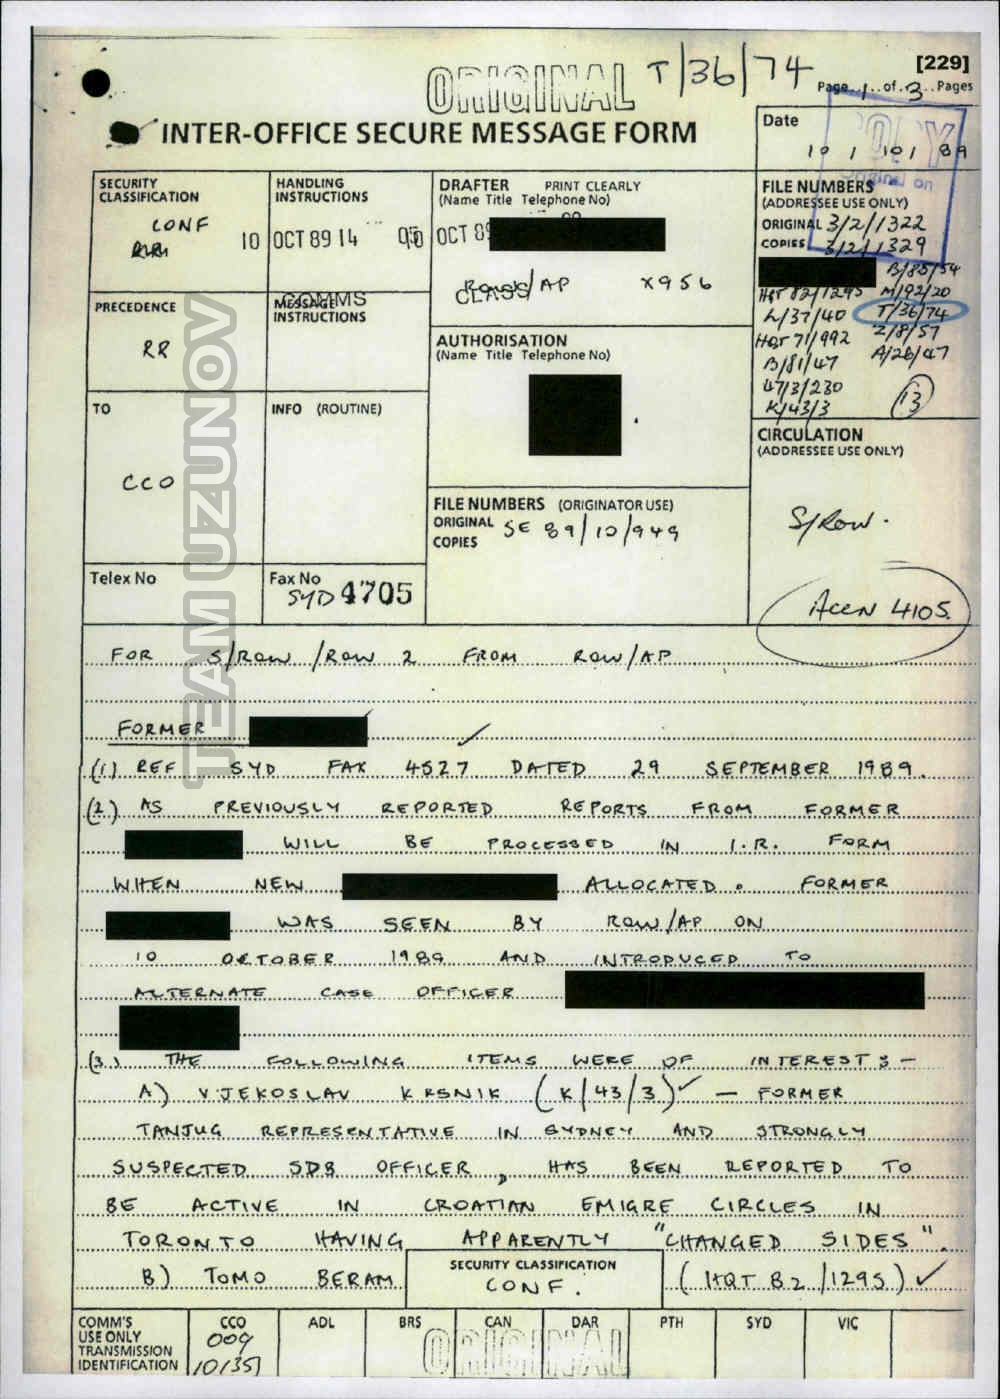 [229]
ORIGINAL T/36/74
Page 1 of 3 Pages
INTER-OFFICE SECURE MESSAGE FORM
Date
10 / 10 / 89
COPY
Original on
SECURITY CLASSIFICATION
CONF
HANDLING INSTRUCTIONS
10 OCT 89 14
DRAFTER PRINT CLEARLY
(Name Title Telephone No)
OCT 89
/AP X956
FILE NUMBERS
(ADDRESSEE USE ONLY)
ORIGINAL 3/2/1322
COPIES 3/2/1329
B/85/54
HQT 82/1295 M/92/20
L/37/40 T/36/74
HQT 71/992 Z/8/57
B/81/47 A/28/47
47/3/230
K/43/3 13
PRECEDENCE
RR
COMMS
MESSAGE INSTRUCTIONS
AUTHORISATION
(Name Title Telephone No)
TO
CCO
INFO (ROUTINE)
CIRCULATION
(ADDRESSEE USE ONLY)
S/ROW.
FILE NUMBERS (ORIGINATOR USE)
ORIGINAL SE 89/10/949
COPIES
Telex No
Fax No
SYD 4705
ACCN 4105.
TEAM UZUNOV
FOR S/ROW /ROW 2 FROM ROW/AP
FORMER
(1) REF SYD FAX 4527 DATED 29 SEPTEMBER 1989.
(2) AS PREVIOUSLY REPORTED REPORTS FROM FORMER
WILL BE PROCESSED IN I.R. FORM
WHEN NEW ALLOCATED. FORMER
WAS SEEN BY ROW/AP ON
10 OCTOBER 1989 AND INTRODUCED TO
ALTERNATE CASE OFFICER
(3.) THE FOLLOWING ITEMS WERE OF INTEREST:-
A) VJEKOSLAV KRSNIK (K/43/3) ✓ - FORMER
TANJUG REPRESENTATIVE IN SYDNEY AND STRONGLY
SUSPECTED SDB OFFICER, HAS BEEN REPORTED TO
BE ACTIVE IN CROATIAN EMIGRE CIRCLES IN
TORONTO HAVING APPARENTLY "CHANGED SIDES".
B) TOMO BERAM (HQT 82/1295) ✓
SECURITY CLASSIFICATION
CONF.
COMM'S USE ONLY TRANSMISSION IDENTIFICATION
CCO ADL BRS CAN DAR PTH SYD VIC
009
10/1351
ORIGINAL